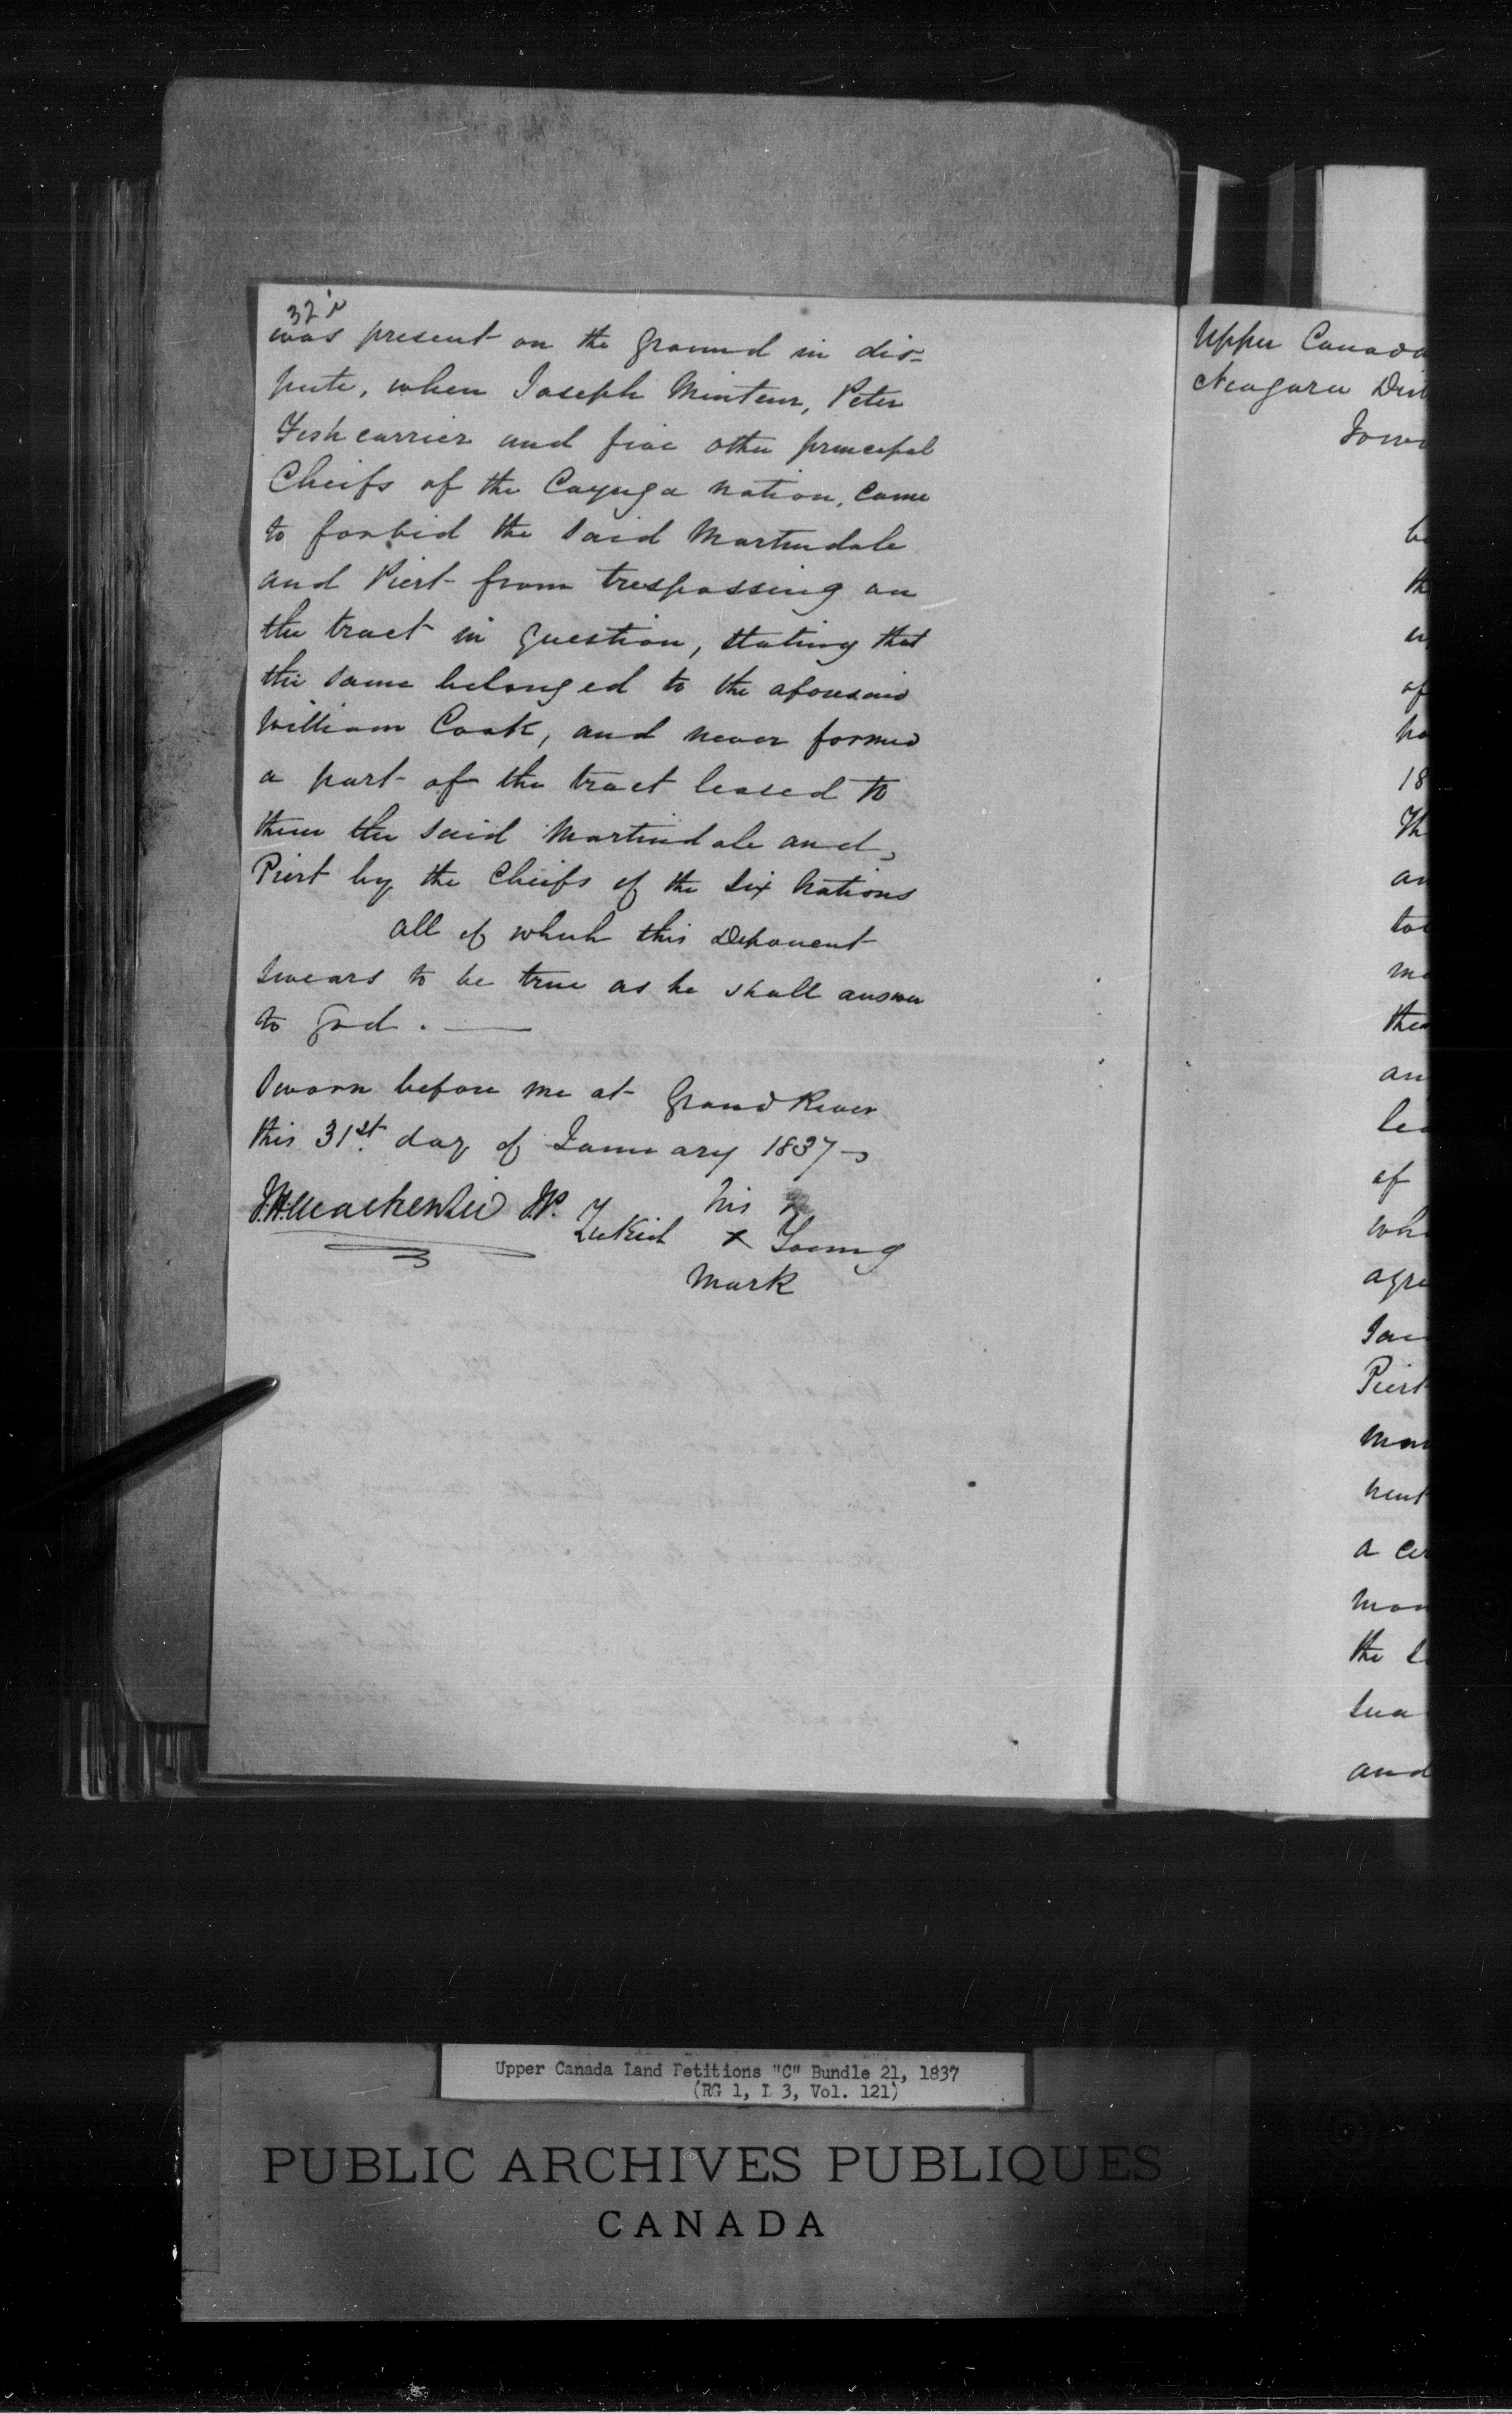 was present on the ground in dis-
pute, when Joseph Minteur, Peter
Fish carrier and five other principal
Cheifs of the Cayuga nation, came
to forbid the said Martindale
and Piert from trespassing on
the tract in question, stating that
the same belonged to the aforesaid
William Cook, and never formed
a part of the tract leased to
them the said Martindale and
Piert by the Cheifs of the Six Nations
all of which this Deponent
swears to be true as he shall answer
to God.
Sworn before me at Grand River
this 31st day of January 1837
Mackenzie J.P.
his
x Young
mark
Upper Canada
Niagara
th
of
18
Th
an
the
an
of
agre
Piert
the
and
Upper Canada Land Petitions "C" Bundle 21, 1837
(RG 1, L 3, Vol. 121)
PUBLIC ARCHIVES PUBLIQUES
CANADA